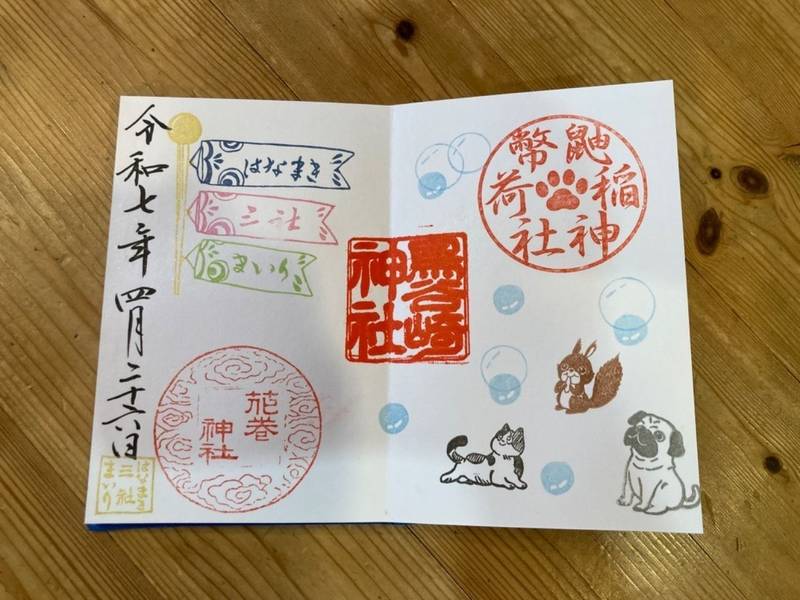 鼬幣
稲荷
神社
鳥谷崎
神社
はなまき
三社
まいり
花巻
神社
令和七年四月二十六日
はなまき
三社
まいり